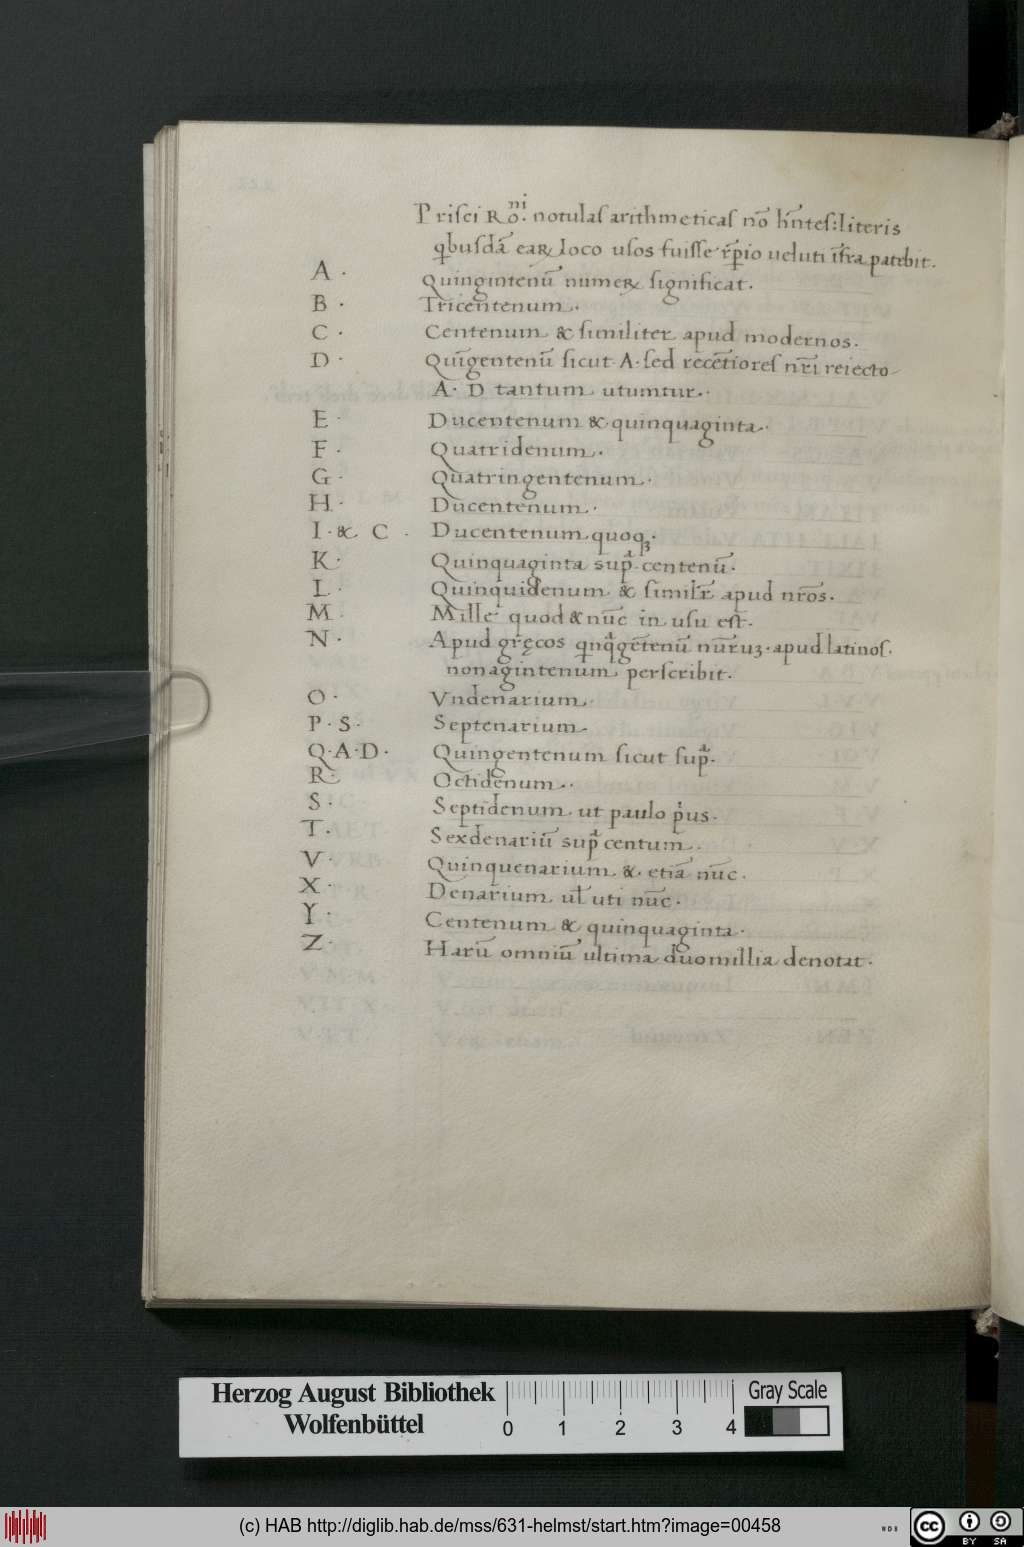 Prisci Ro.ni notulas arithmeticas nō hn̄tes: literis
qbusdā eaꝝ loco usos fuisse rp̄io veluti īfra patebit.
A. Quingintenū numeꝝ significat.
B. Tricentenum.
C. Centenum & similiter apud modernos.
D. Quīgentenū sicut A. sed recētiores nr̄i reiecto
A. D tantum utumtur.
E. Ducentenum & quinquaginta.
F. Quatridenum.
G. Quatringentenum.
H. Ducentenum.
I. & C. Ducentenum quoqꝫ.
K. Quinquaginta supᵃ centenū.
L. Quinquidenum & similr̄ apud nr̄os.
M. Mille quod & nūc in usu est.
N. Apud gręcos qnqᵃgētenū nūruꝫ. apud latinos.
nonagintenum perscribit.
O. Vndenarium.
P. S. Septenarium.
Q. A. D. Quingentenum sicut supᵃ.
R. Octidenum.
S. Septidenum ut paulo pⁱus.
T. Sexdenariū supᵃ centum.
V. Quinquenarium & etiā nūc.
X. Denarium ul̄ uti nūc.
Y. Centenum & quinquaginta.
Z. Harū omniū ultima duo millia denotat.
Herzog August Bibliothek
Wolfenbüttel
0 1 2 3 4
Gray Scale
(c) HAB http://diglib.hab.de/mss/631-helmst/start.htm?image=00458
WDB
cc BY SA